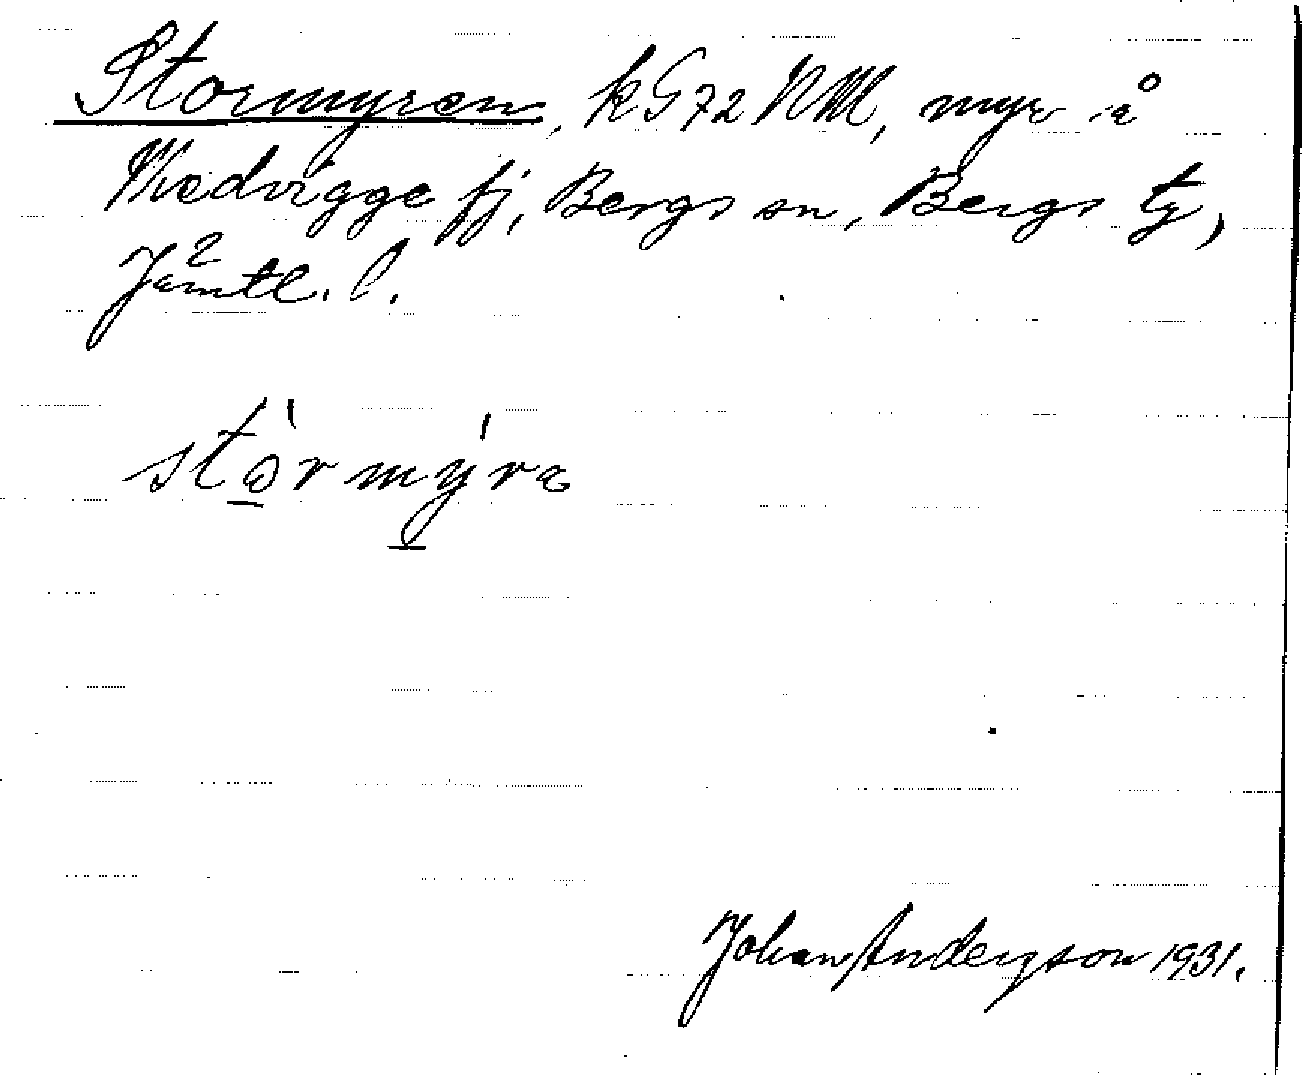 Stormyren, k G 72 NM, myr å
Medvigge fj, Bergs sn, Bergs tg,
Jämtl. l.
stərmyra
Johan Anderson 1931.